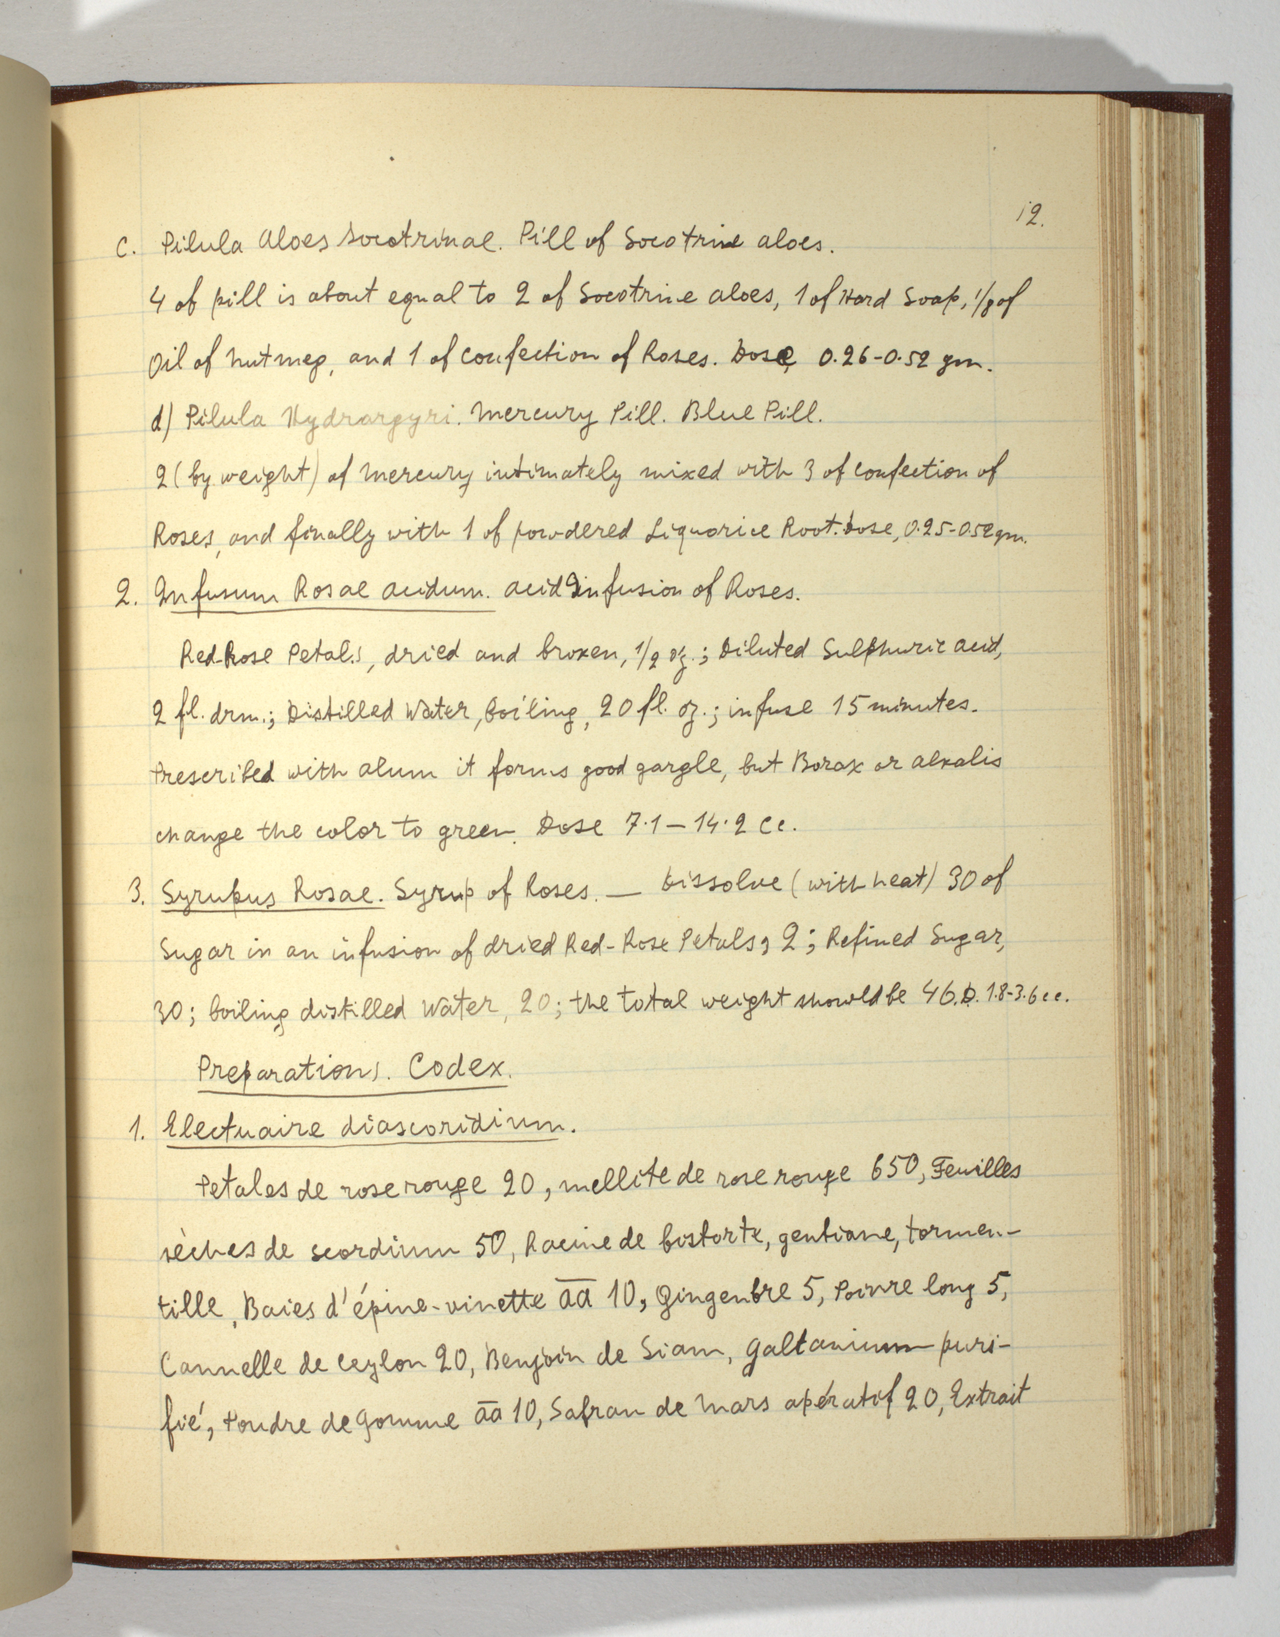 12.
c. Pilula Aloes Socotrinae. Pill of Socotrine aloes.
4 of pill is about equal to 2 of Socotrine aloes, 1 of Hard Soap, 1/8 of
Oil of nutmeg, and 1 of confection of Roses. Dose, 0.26-0.52 gm.
d) Pilula Hydrargyri. Mercury Pill. Blue Pill.
2 (by weight) of Mercury intimately mixed with 3 of confection of
Roses, and finally with 1 of powdered Liquorice Root. Dose, 0.25-0.52 gm.
2. Infusum Rosae acidum. acid Infusion of Roses.
Red-Rose Petals, dried and broken, 1/2 oz.; Diluted Sulphuric acid,
2 fl. drm.; Distilled Water, boiling, 20 fl. oz.; infuse 15 minutes.
Prescribed with alum it forms good gargle, but Borax or alkalis
change the color to green. Dose 7.1-14.2 cc.
3. Syrupus Rosae. Syrup of Roses. — Dissolve (with heat) 30 of
Sugar in an infusion of dried Red-Rose Petals, 2; Refined Sugar,
30; boiling distilled Water, 20; the total weight should be 46. D. 1.8-3.6 cc.
Preparations. Codex.
1. Electuaire diascoridium.
Petales de rose rouge 20, mellite de rose rouge 650, Feuilles
sèches de scordium 50, Racine de bistorte, gentiane, tormen-
tille, Baies d'épine-vinette āā 10, Gingenbre 5, Poivre long 5,
Cannelle de Ceylon 20, Benjoin de Siam, galtanium puri-
fié, Poudre de gomme āā 10, Safran de Mars apératif 20, Extrait